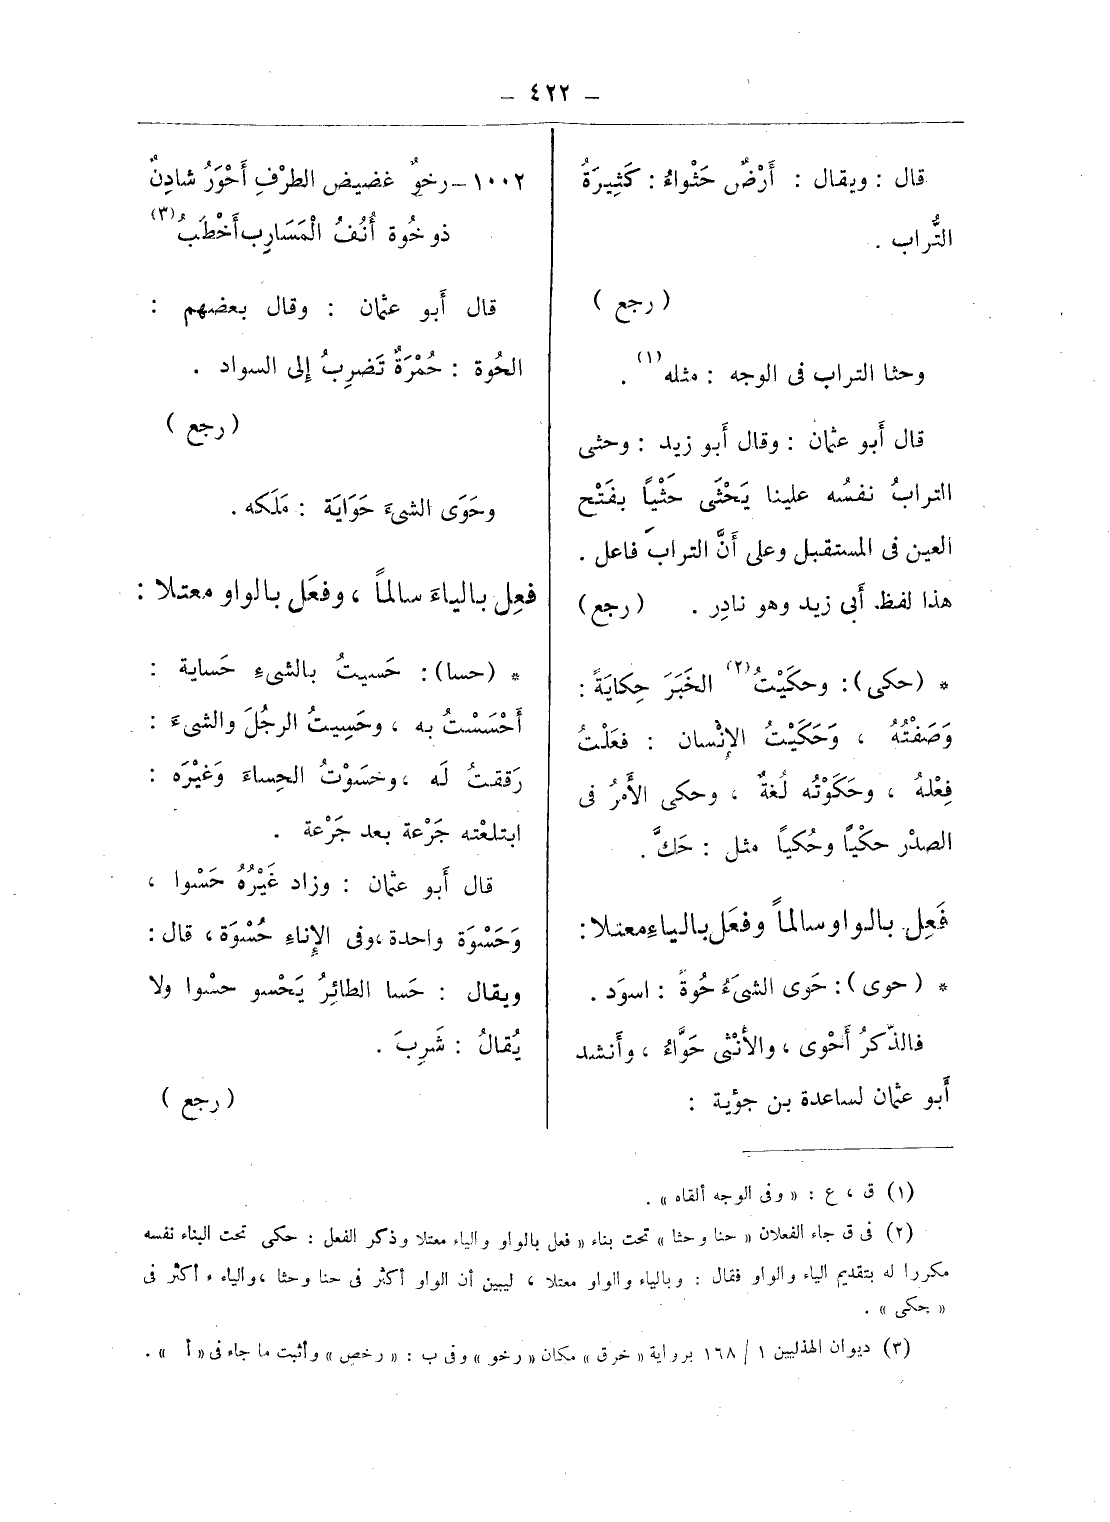 – ٤٢٢ –
قال : ويقال : أَرْضٌ حَثْواءُ : كَثِيرَةُ
التُّراب .
( رجع )
وحثا التراب فى الوجه : مثله (١) .
قال أَبو عثمان : وقال أَبو زيد : وحثى
الترابُ نفسُه علينا يَحْثَى حَثْياً بفَتْح
العين فى المستقبل وعلى أَنَّ الترابَ فاعل .
هذا لفظ أَبى زيد وهو نادِر . ( رجع )
* (حكى) : وحكَيْتُ (٢) الخَبَرَ حِكايَةً :
وَصَفْتُهُ ، وَحَكَيْتُ الإِنْسان : فعَلْتُ
فِعْلهُ ، وحَكَوْتُه لُغةٌ ، وحكى الأَمْرُ فى
الصدْر حكْياً وحُكياً مثل : حَكَّ .
فَعِل بالواو سالماً وفعَل بالياءِ معتلا :
* ( حوى ) : حَوى الشىَءُ حُوةً : اسودَ .
فالذّكرُ أَحْوى ، والأنْثى حَوَّاءُ ، وأَنشد
أَبو عثمان لساعدة بن جؤية :
١٠٠٢ – رخوٌ غضيض الطرْفِ أَحْوَرُ شادِنٌ
ذو حُوة أُنُفُ الْمَسَارِبِ أَخْطَبُ (٣)
قال أَبو عثمان : وقال بعضهم :
الحُوة : حُمْرَةٌ تَضرِبُ إلى السواد .
( رجع )
وحَوَى الشىءَ حَوَايَة : مَلَكه .
فعِل بالياءَ سالماً ، وفعَل بالواو معتلا :
* (حسا) : حَسيتُ بالشىءِ حَساية :
أَحْسَسْتُ به ، وحَسِيتُ الرجُلَ والشىءَ :
رَققتُ لَه ، وحَسَوْتُ الحِساءَ وَغيْرَه :
ابتلعْته جَرْعة بعد جَرْعة .
قال أَبو عثمان : وزاد غَيْرُهُ حَسْوا ،
وَحَسْوَة واحدة ،وفى الإِناءِ حُسْوَة ، قال :
ويقال : حَسا الطائِرُ يَحْسو حسْوا ولا
يُقالُ : شَرِبَ .
( رجع )
(١) ق ، ع : « وفى الوجه ألقاه » .
(٢) فى ق جاء الفعلان « حنا وحثا » تحت بناء « فعل بالواو والياء معتلا وذكر الفعل : حكى تحت البناء نفسه
مكررا له بتقديم الياء والواو فقال : وبالياء والواو معتلا ، ليبين أن الواو أكثر فى حنا وحثا ، والياء أكثر فى
« حكى » .
(٣) ديوان الهذليين ١ / ١٦٨ برواية « خرق » مكان « رخو » وفى ب : « رخص » وأثبت ما جاء فى « أ » .